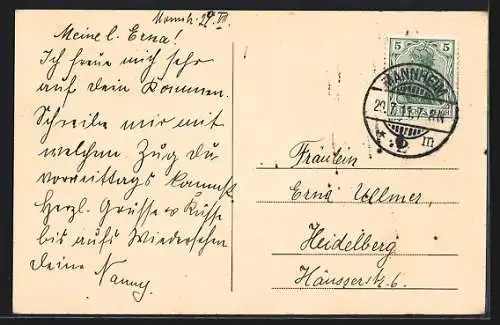 Mannh. 29. VII.
Meine l. Erna!
Ich freue mich sehr
auf dein Kommen.
Schreibe mir mit
welchem Zug du
vormittags kommst.
Herzl. Grüsse u Küsse
bis aufs Wiedersehen
deine Nanny.
5 5
MANNHEIM
29.7.
Fräulein
Erna Ullmer,
Heidelberg
Häusserstr. 6.